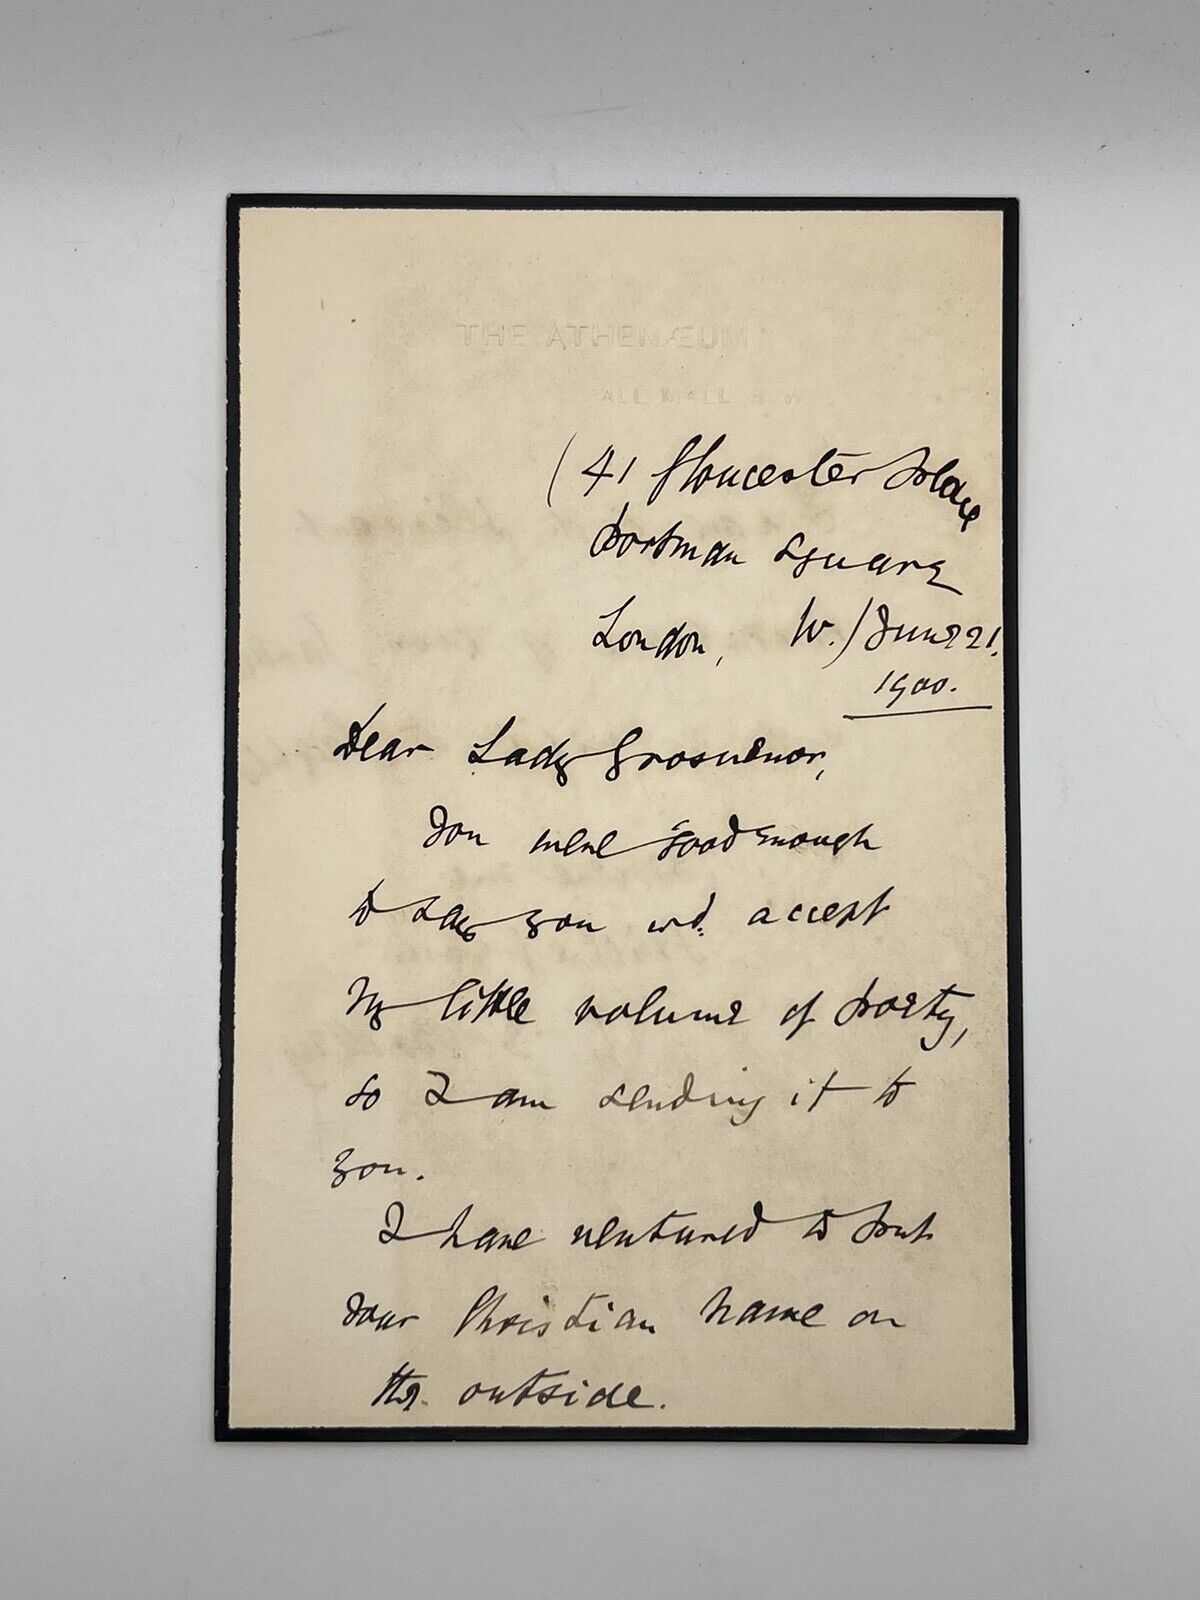 THE ATHENÆUM
PALL MALL S.W
(41 Gloucester Place
Portman Square
London, W.) June 21.
1900.
Dear Lady Grosvenor,
You were good enough
to say you wd. accept
my little volume of poetry,
so I am sending it to
you.
I have ventured to put
your Christian name on
the outside.